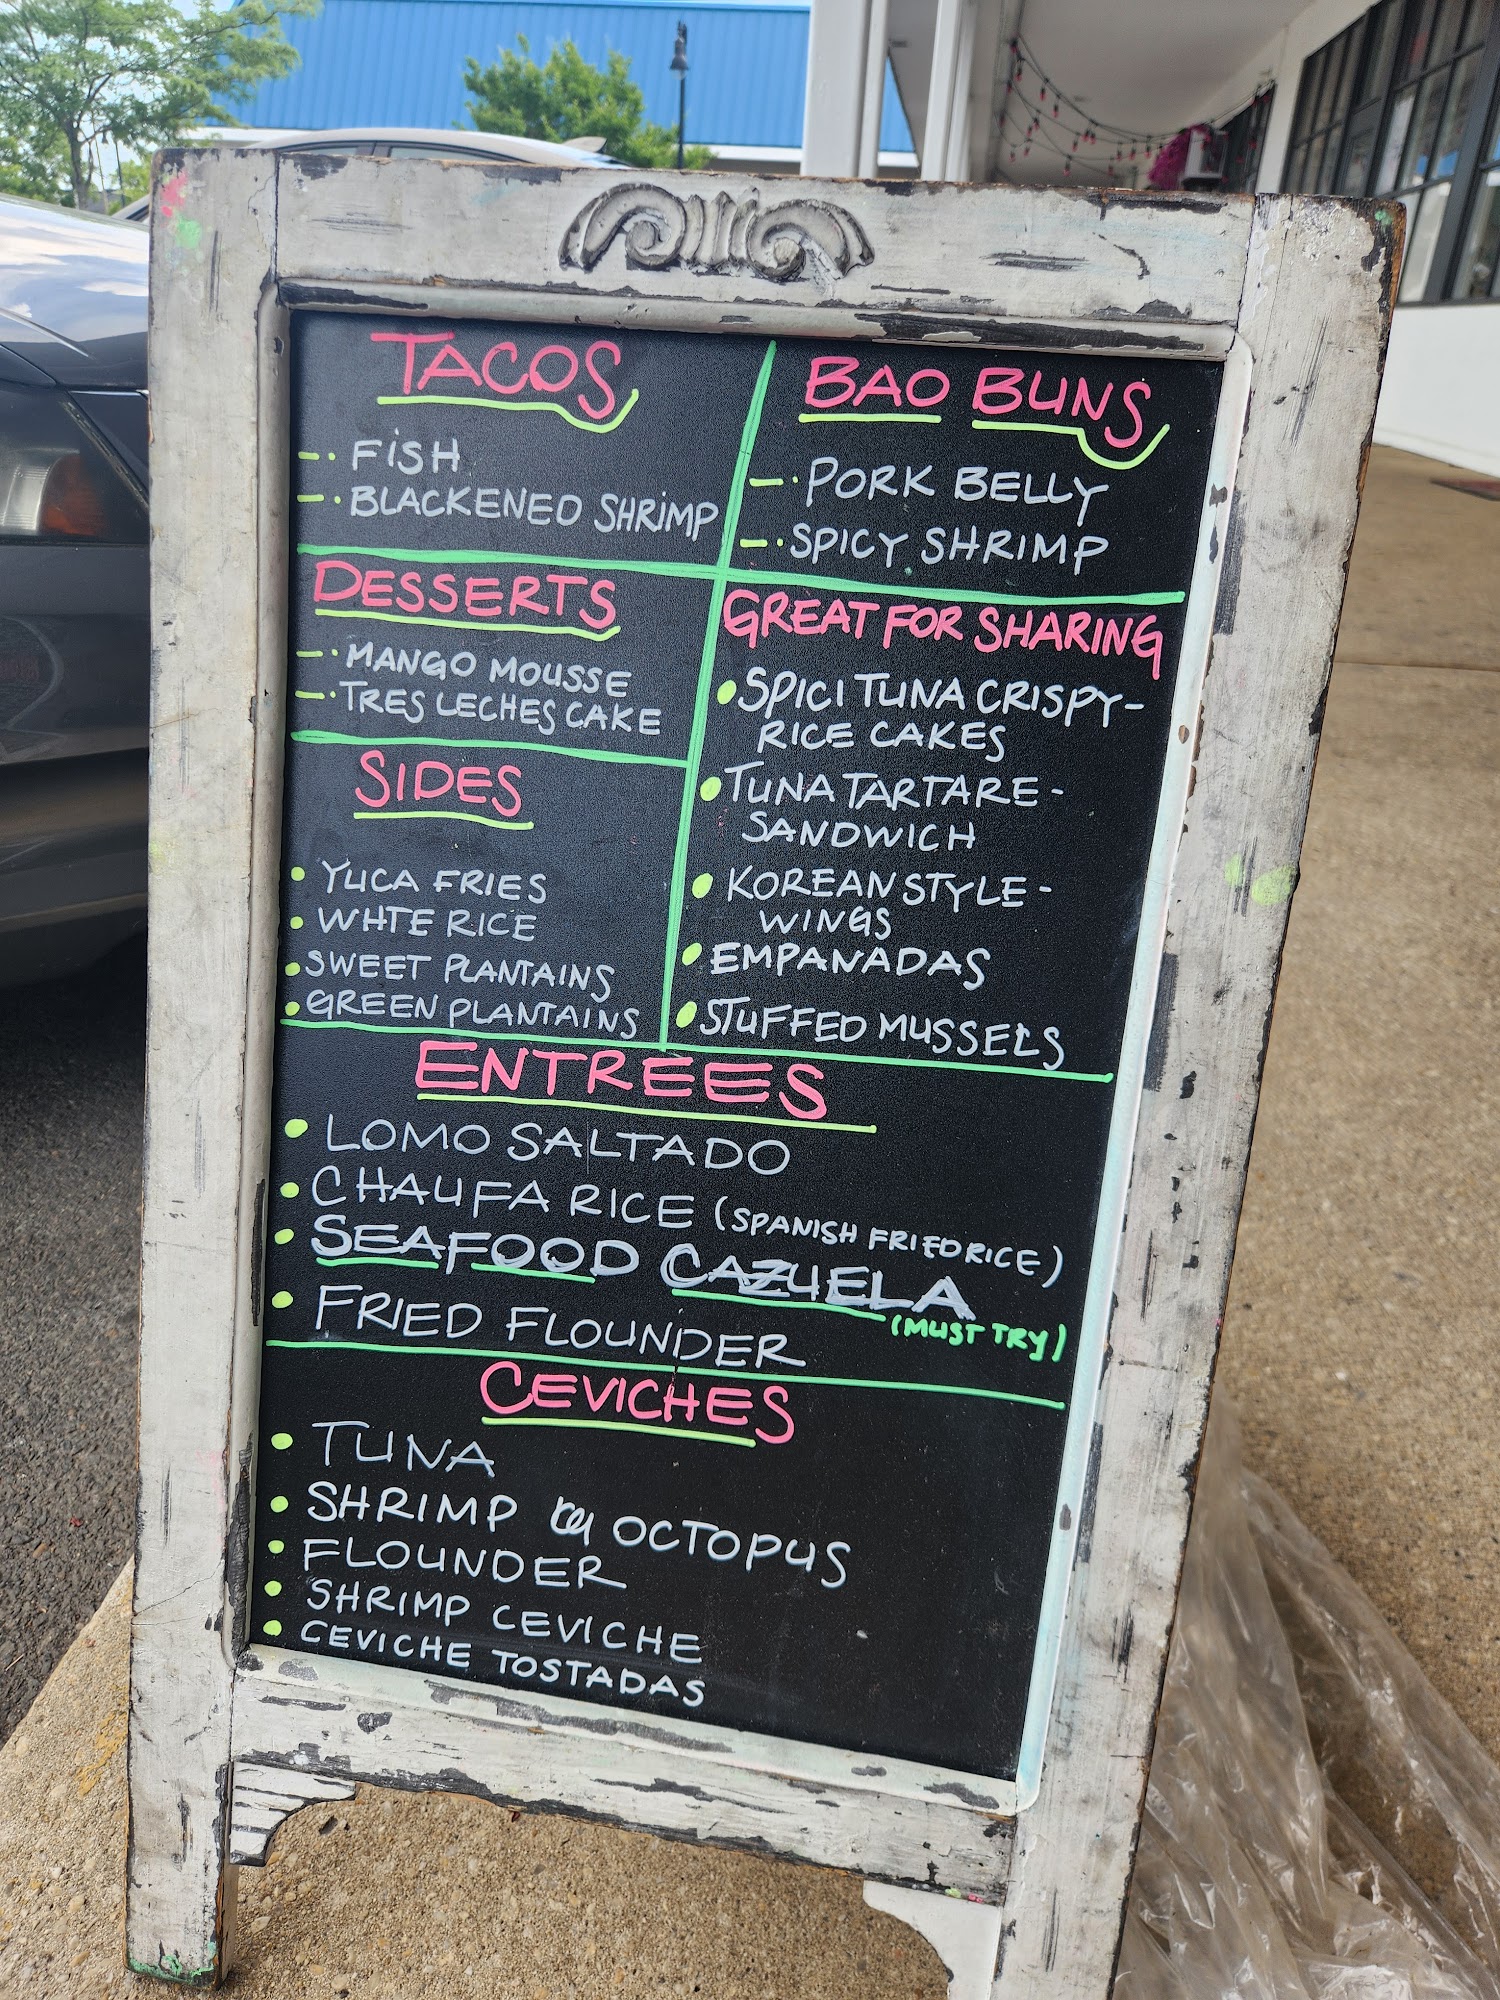 TACOS
-· FiSH
-· BLACKENED SHRiMP
BAO BUNS
-· PORK BELLY
-· SPICY SHRIMP
DESSERTS
-· MANGO MOUSSE
-· TRES LECHES CAKE
GREAT FOR SHARING
• SPICI TUNA CRISPY-
RICE CAKES
• TUNA TARTARE-
SANDWICH
• KOREAN STYLE-
WINGS
• EMPANADAS
• STUFFED MUSSELS
SIDES
• YUCA FRIES
• WHTE RICE
• SWEET PLANTAINS
• GREEN PLANTAINS
ENTREES
• LOMO SALTADO
• CHAUFA RICE (SPANISH FRIED RICE)
• SEAFOOD CAZUELA
(MUST TRY)
• FRIED FLOUNDER
CEVICHES
• TUNA
• SHRIMP OCTOPUS
• FLOUNDER
• SHRIMP CEVICHE
• CEVICHE TOSTADAS